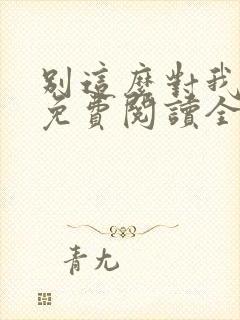 別這麼對我
免費閱讀全
青尢